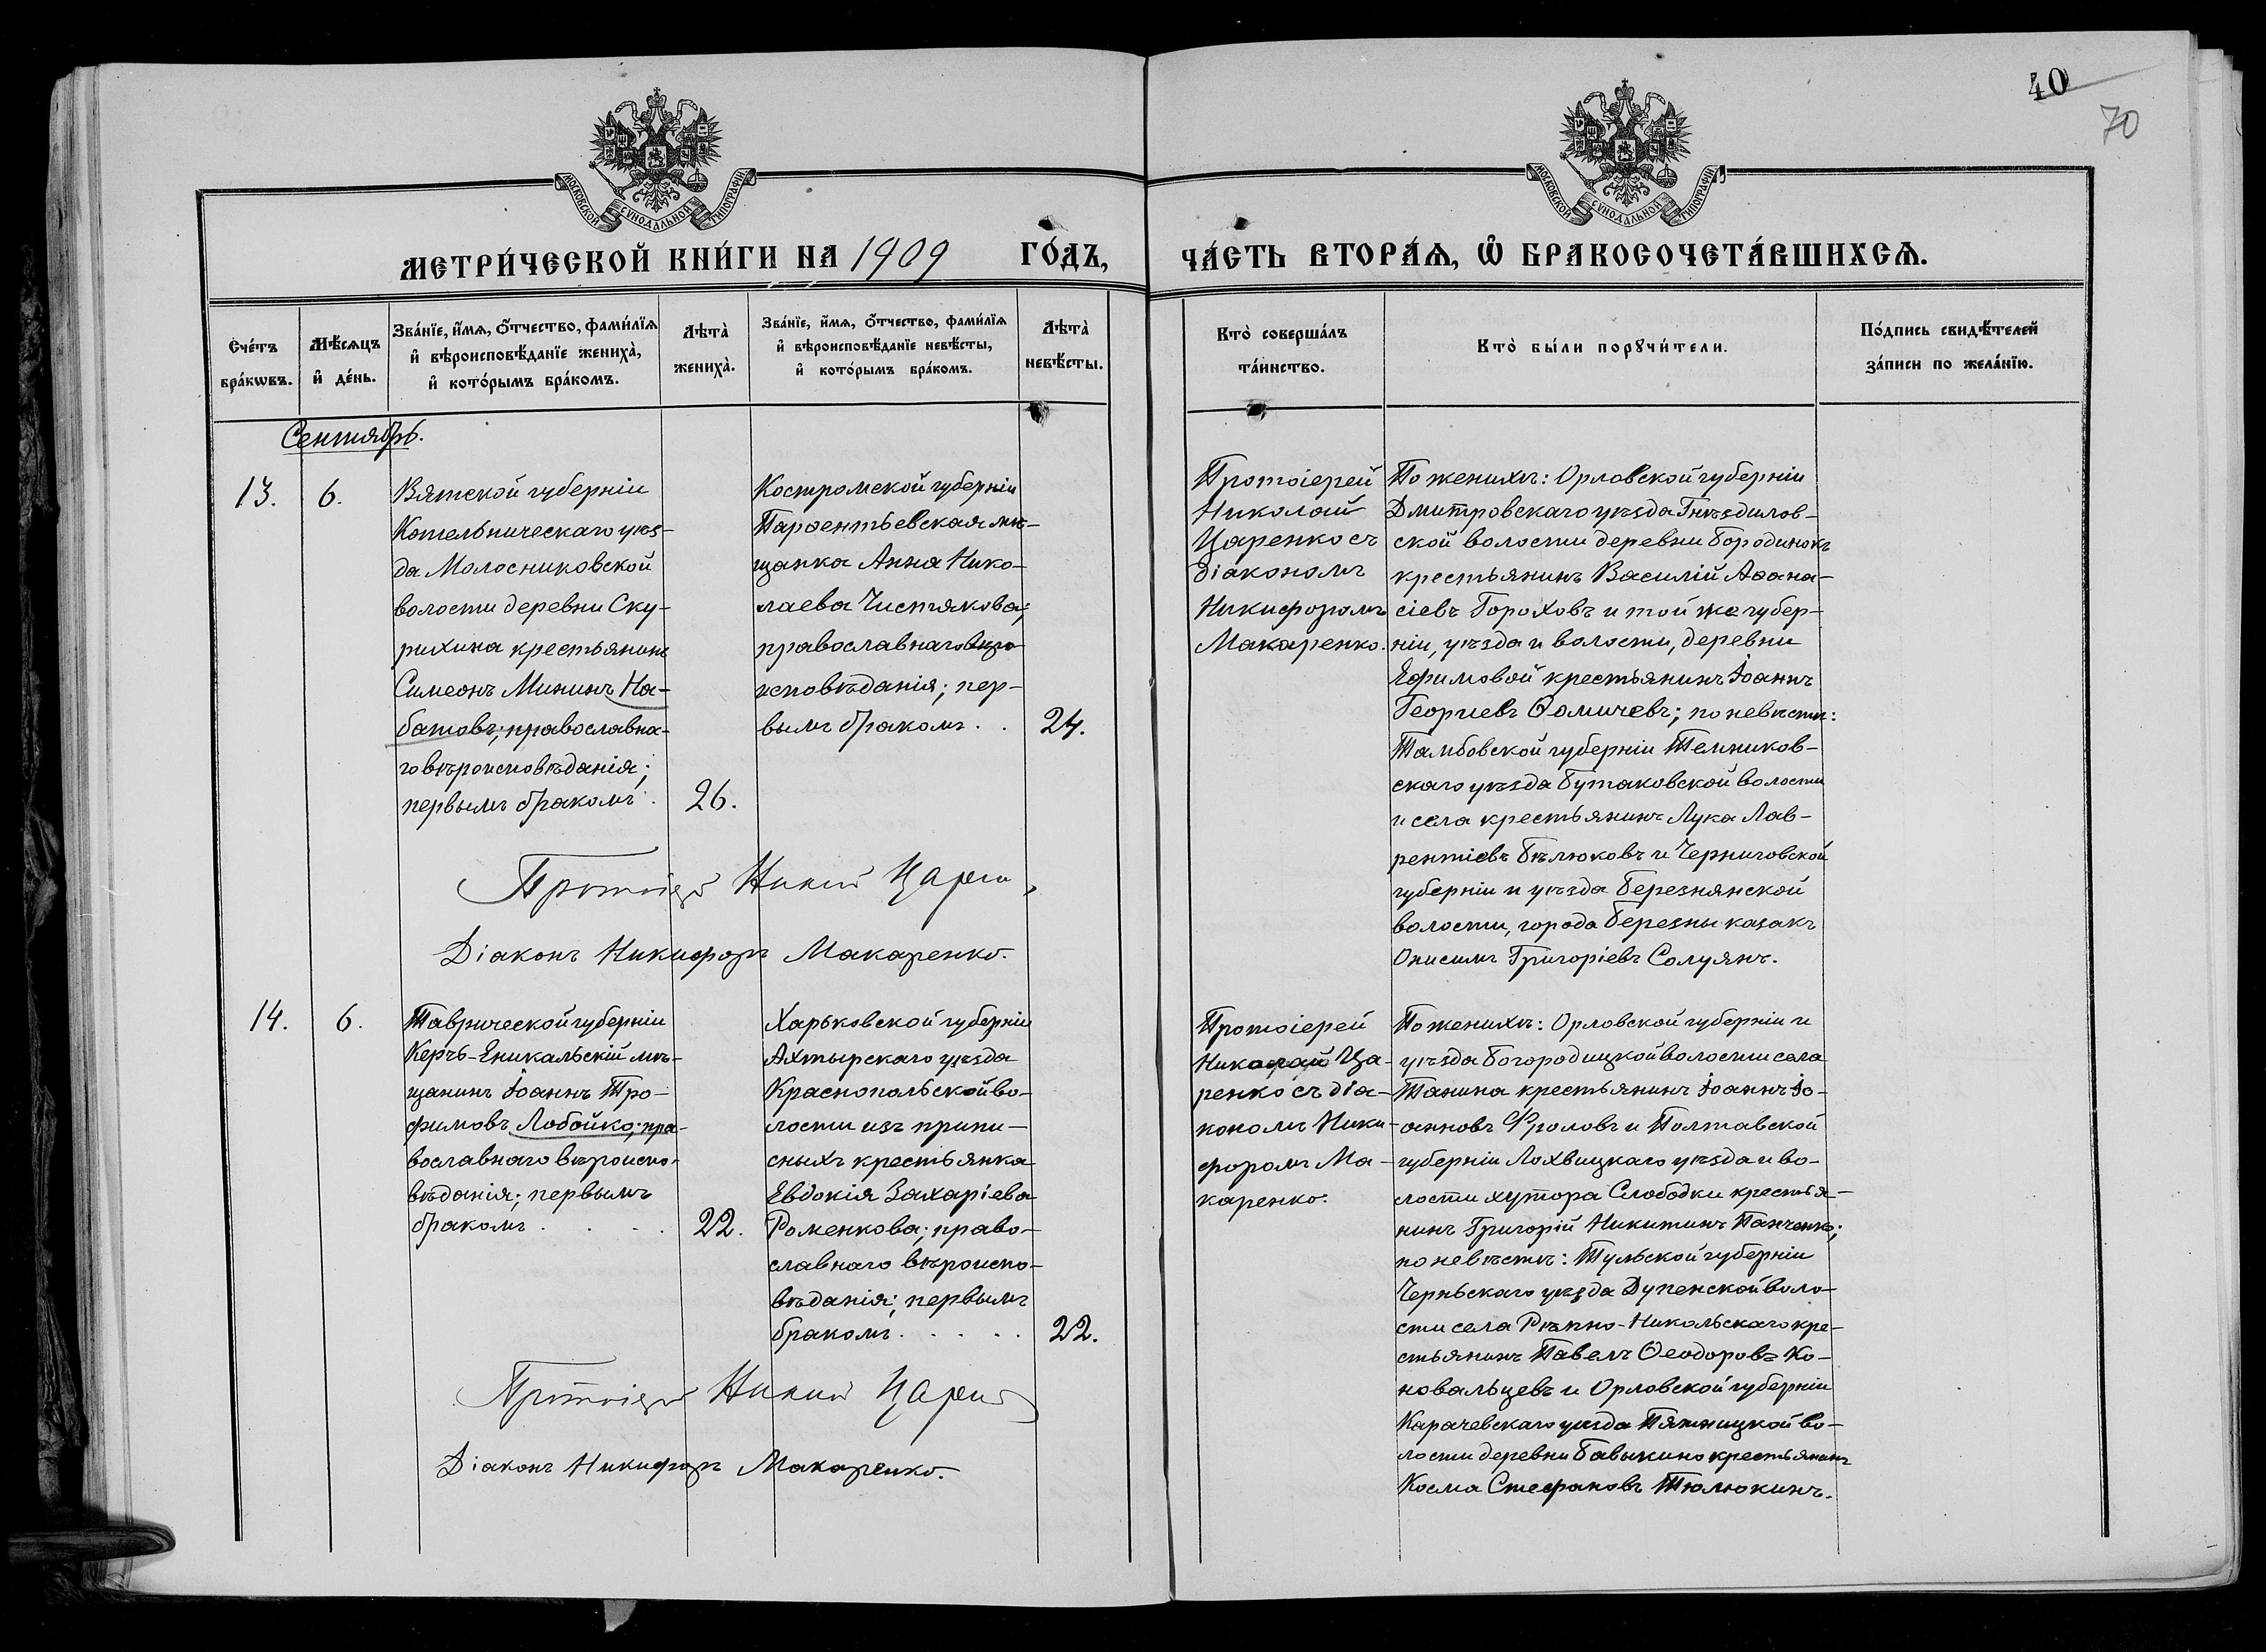 40
70
МОСКОВСКОЙ СѴНОДАЛЬНОЙ ТИПОГРАФІИ
МОСКОВСКОЙ СѴНОДАЛЬНОЙ ТИПОГРАФІИ
МЕТРИ́ЧЕСКОЙ КНИ́ГИ НА 1909 ГО́ДЪ,
ЧА́СТЬ ВТОРА́Ѧ, Ѽ БРАКОСОЧЕТА́ВШИХСѦ.
Сче́тъ
бра́кѡвъ.
Мѣ́сѧцъ
и҆ де́нь.
Зва́нїе, и҆́мѧ, ѻ҆́тчество, фами́лїѧ
и҆ вѣроисповѣ́данїе жениха̀,
и҆ кото́рымъ бра́комъ.
Лѣта̀
жениха̀.
Зва́нїе, и҆́мѧ, ѻ҆́тчество, фами́лїѧ
и҆ вѣроисповѣ́данїе невѣ́сты,
и҆ кото́рымъ бра́комъ.
Лѣта̀
невѣ́сты.
Кто̀ соверша́лъ
та́инство.
Кто̀ бы́ли порꙋчи́тели.
По́дпись свидѣ́телей
за́писи по жела́нїю.
Сентябрь.
13.
6.
Вятской губерніи
Котельническаго уѣз-
да Молосниковской
волости деревни Ску-
рихина крестьянинъ
Симеонъ Мининъ На-
батовъ; православна-
го вѣроисповѣданія;
первымъ бракомъ.
26.
Костромской губерніи
Парѳентьевская мѣ-
щанка Анна Нико-
лаева Чистякова;
православнаго вѣро-
исповѣданія; пер-
вымъ бракомъ. .
24.
Протоіерей
Николай
Царенко съ
діакономъ
Никифоромъ
Макаренко.
По женихѣ: Орловской губерніи
Дмитровскаго уѣзда Гнѣздилов-
ской волости деревни Бородинокъ
крестьянинъ Василій Аѳана-
сіевъ Гороховъ и той же губер-
ніи, уѣзда и волости, деревни
Ефимовой крестьянинъ Іоаннъ
Георгіевъ Ѳомичевъ; по невѣстѣ:
Тамбовской губерніи Темников-
скаго уѣзда Бутаковской волости
и села крестьянинъ Лука Лав-
рентіевъ Бѣлюковъ и Черниговской
губерніи и уѣзда Березнянской
волости, города Березны казакъ
Онисимъ Григоріевъ Солуянъ.
Протоіерей Николай Царенко
Діаконъ Никифоръ Макаренко.
14.
6.
Таврической губерніи
Керчь-Еникальскій мѣ-
щанинъ Іоаннъ Тро-
фимовъ Лобойко; пра-
вославнаго вѣроиспо-
вѣданія; первымъ
бракомъ . . . .
22.
Харьковской губерніи
Ахтырскаго уѣзда
Краснопольской во-
лости изъ припи-
сныхъ крестьянка
Евдокія Захаріева
Роменкова; право-
славнаго вѣроиспо-
вѣданія; первымъ
бракомъ. . . . .
22.
Протоіерей
Николай Ца-
ренко съ діа-
кономъ Ники-
форомъ Ма-
каренко.
По женихѣ: Орловской губерніи и
уѣзда Богородицкой волости села
Танина крестьянинъ Іоаннъ Іо-
анновъ Фроловъ и Полтавской
губерніи Лохвицкаго уѣзда и во-
лости хутора Слободки крестья-
нинъ Григорій Никитинъ Панченко;
по невѣстѣ: Тульской губерніи
Черньскаго уѣзда Дупенской воло-
сти села Рѣпно-Никольскаго кре-
стьянинъ Павелъ Ѳеодоровъ Ко-
новальцевъ и Орловской губерніи
Карачевскаго уѣзда Пятницкой во-
лости деревни Бавыкино крестьянинъ
Косма Стефановъ Тюлюкинъ.
Протоіерей Николай Царенко
Діаконъ Никифоръ Макаренко.